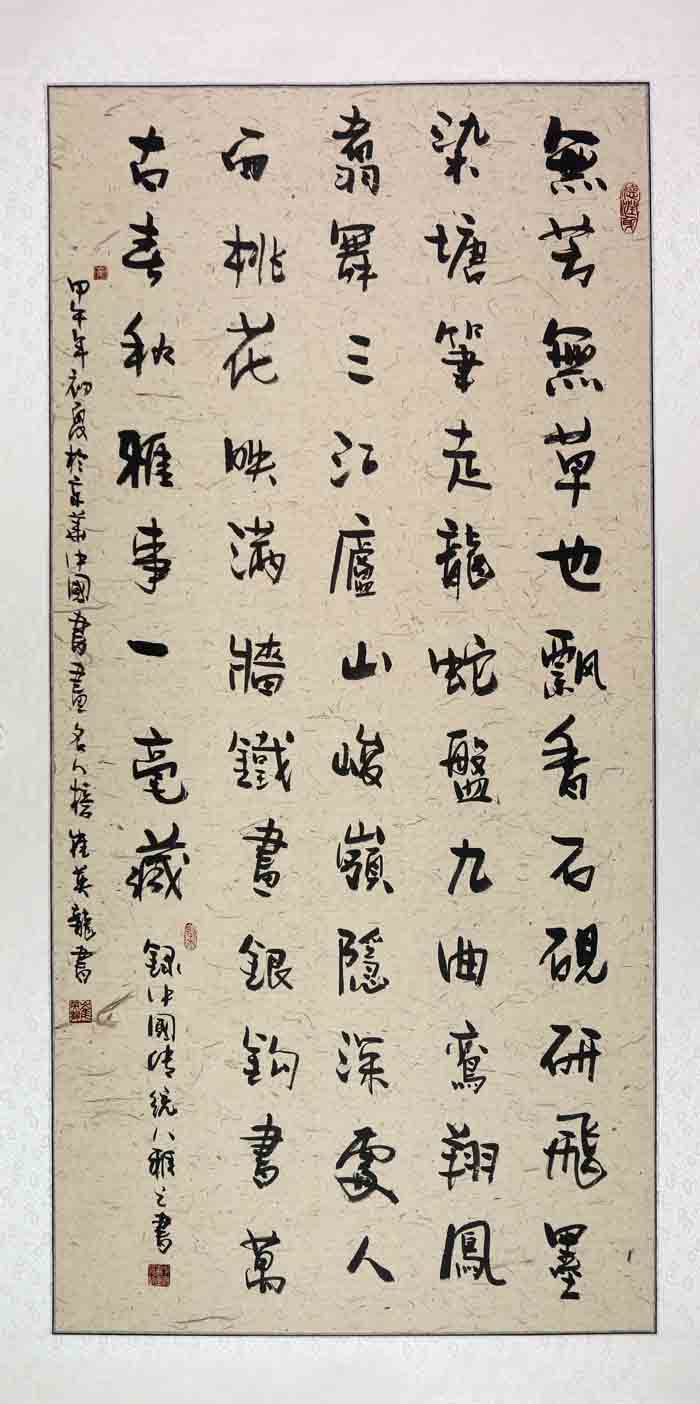 無芳無草也飄香石硯研飛墨
染塘筆走龍蛇盤九曲鸞翔鳳
翥舞三江廬山峻嶺隱深處人
面桃花映滿牆鐵畫銀鈎書萬
古春秋雅事一毫藏
録中國傳統八雅之書
甲午年初夏於京華中國書畫名人榜崔英龍書